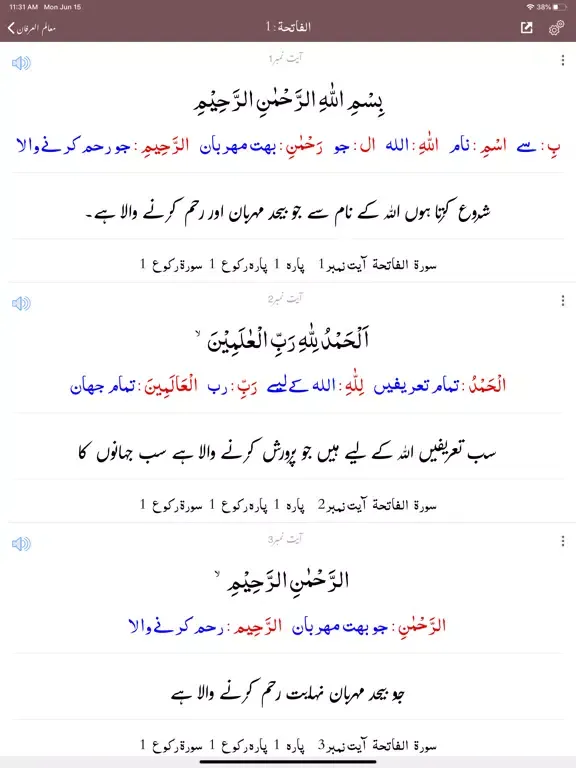 11:31 AM Mon Jun 15 38%
معالم العرفان الفاتحة:1
آیت نمبر1
بِسْمِ اللّٰهِ الرَّحْمٰنِ الرَّحِيْمِ
بِ: سے اسْمِ: نام اللّٰهِ: الله ال: جو رَحْمٰنِ: بهت مهربان الرَّحِيمِ: جو رحم كرنے والا
شروع کرتا ہوں اللہ کے نام سے جو بیحد مہربان اور رحم کرنے والا ہے۔
سورة الفاتحة آيت نمبر1 پاره 1 پاره ركوع 1 سورة ركوع 1
آیت نمبر2
اَلْحَمْدُ لِلّٰهِ رَبِّ الْعٰلَمِيْنَ ۙ
الْحَمْدُ: تمام تعريفيں لِلّٰهِ: الله كے ليے رَبِّ: رب الْعَالَمِينَ: تمام جهان
سب تعریفیں اللہ کے لیے ہیں جو پرورش کرنے والا ہے سب جہانوں کا
سورة الفاتحة آيت نمبر2 پاره 1 پاره ركوع 1 سورة ركوع 1
آیت نمبر3
الرَّحْمٰنِ الرَّحِيْمِ ۙ
الرَّحْمٰنِ: جو بهت مهربان الرَّحِيمِ: رحم كرنے والا
جو بیحد مہربان نہایت رحم کرنے والا ہے
سورة الفاتحة آيت نمبر3 پاره 1 پاره ركوع 1 سورة ركوع 1